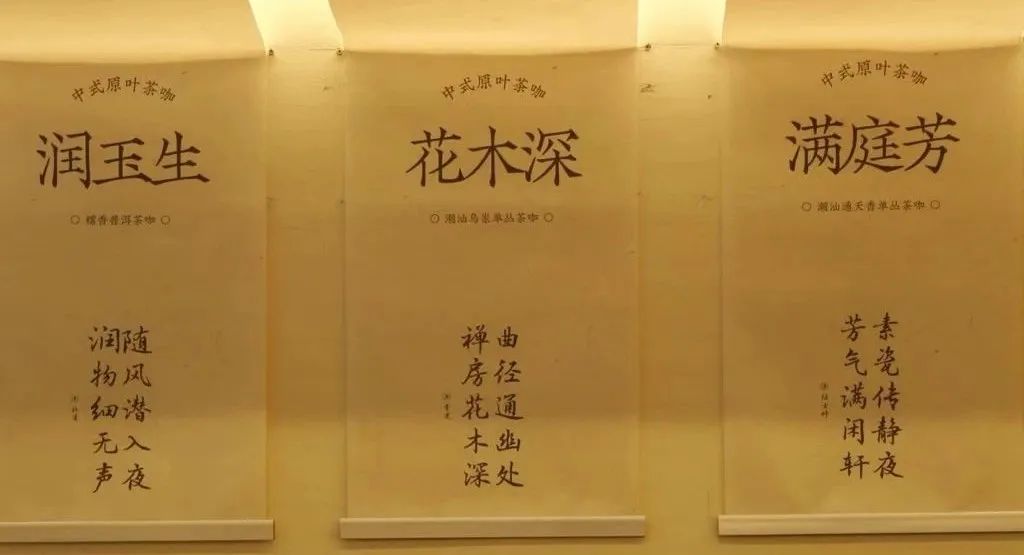 中式原叶茶咖
润玉生
○ 糯香普洱茶咖 ○
随风潜入夜
润物细无声
中式原叶茶咖
花木深
○ 潮汕乌岽单丛茶咖 ○
曲径通幽处
禅房花木深
中式原叶茶咖
满庭芳
○ 潮汕通天香单丛茶咖 ○
素瓷传静夜
芳气满闲轩